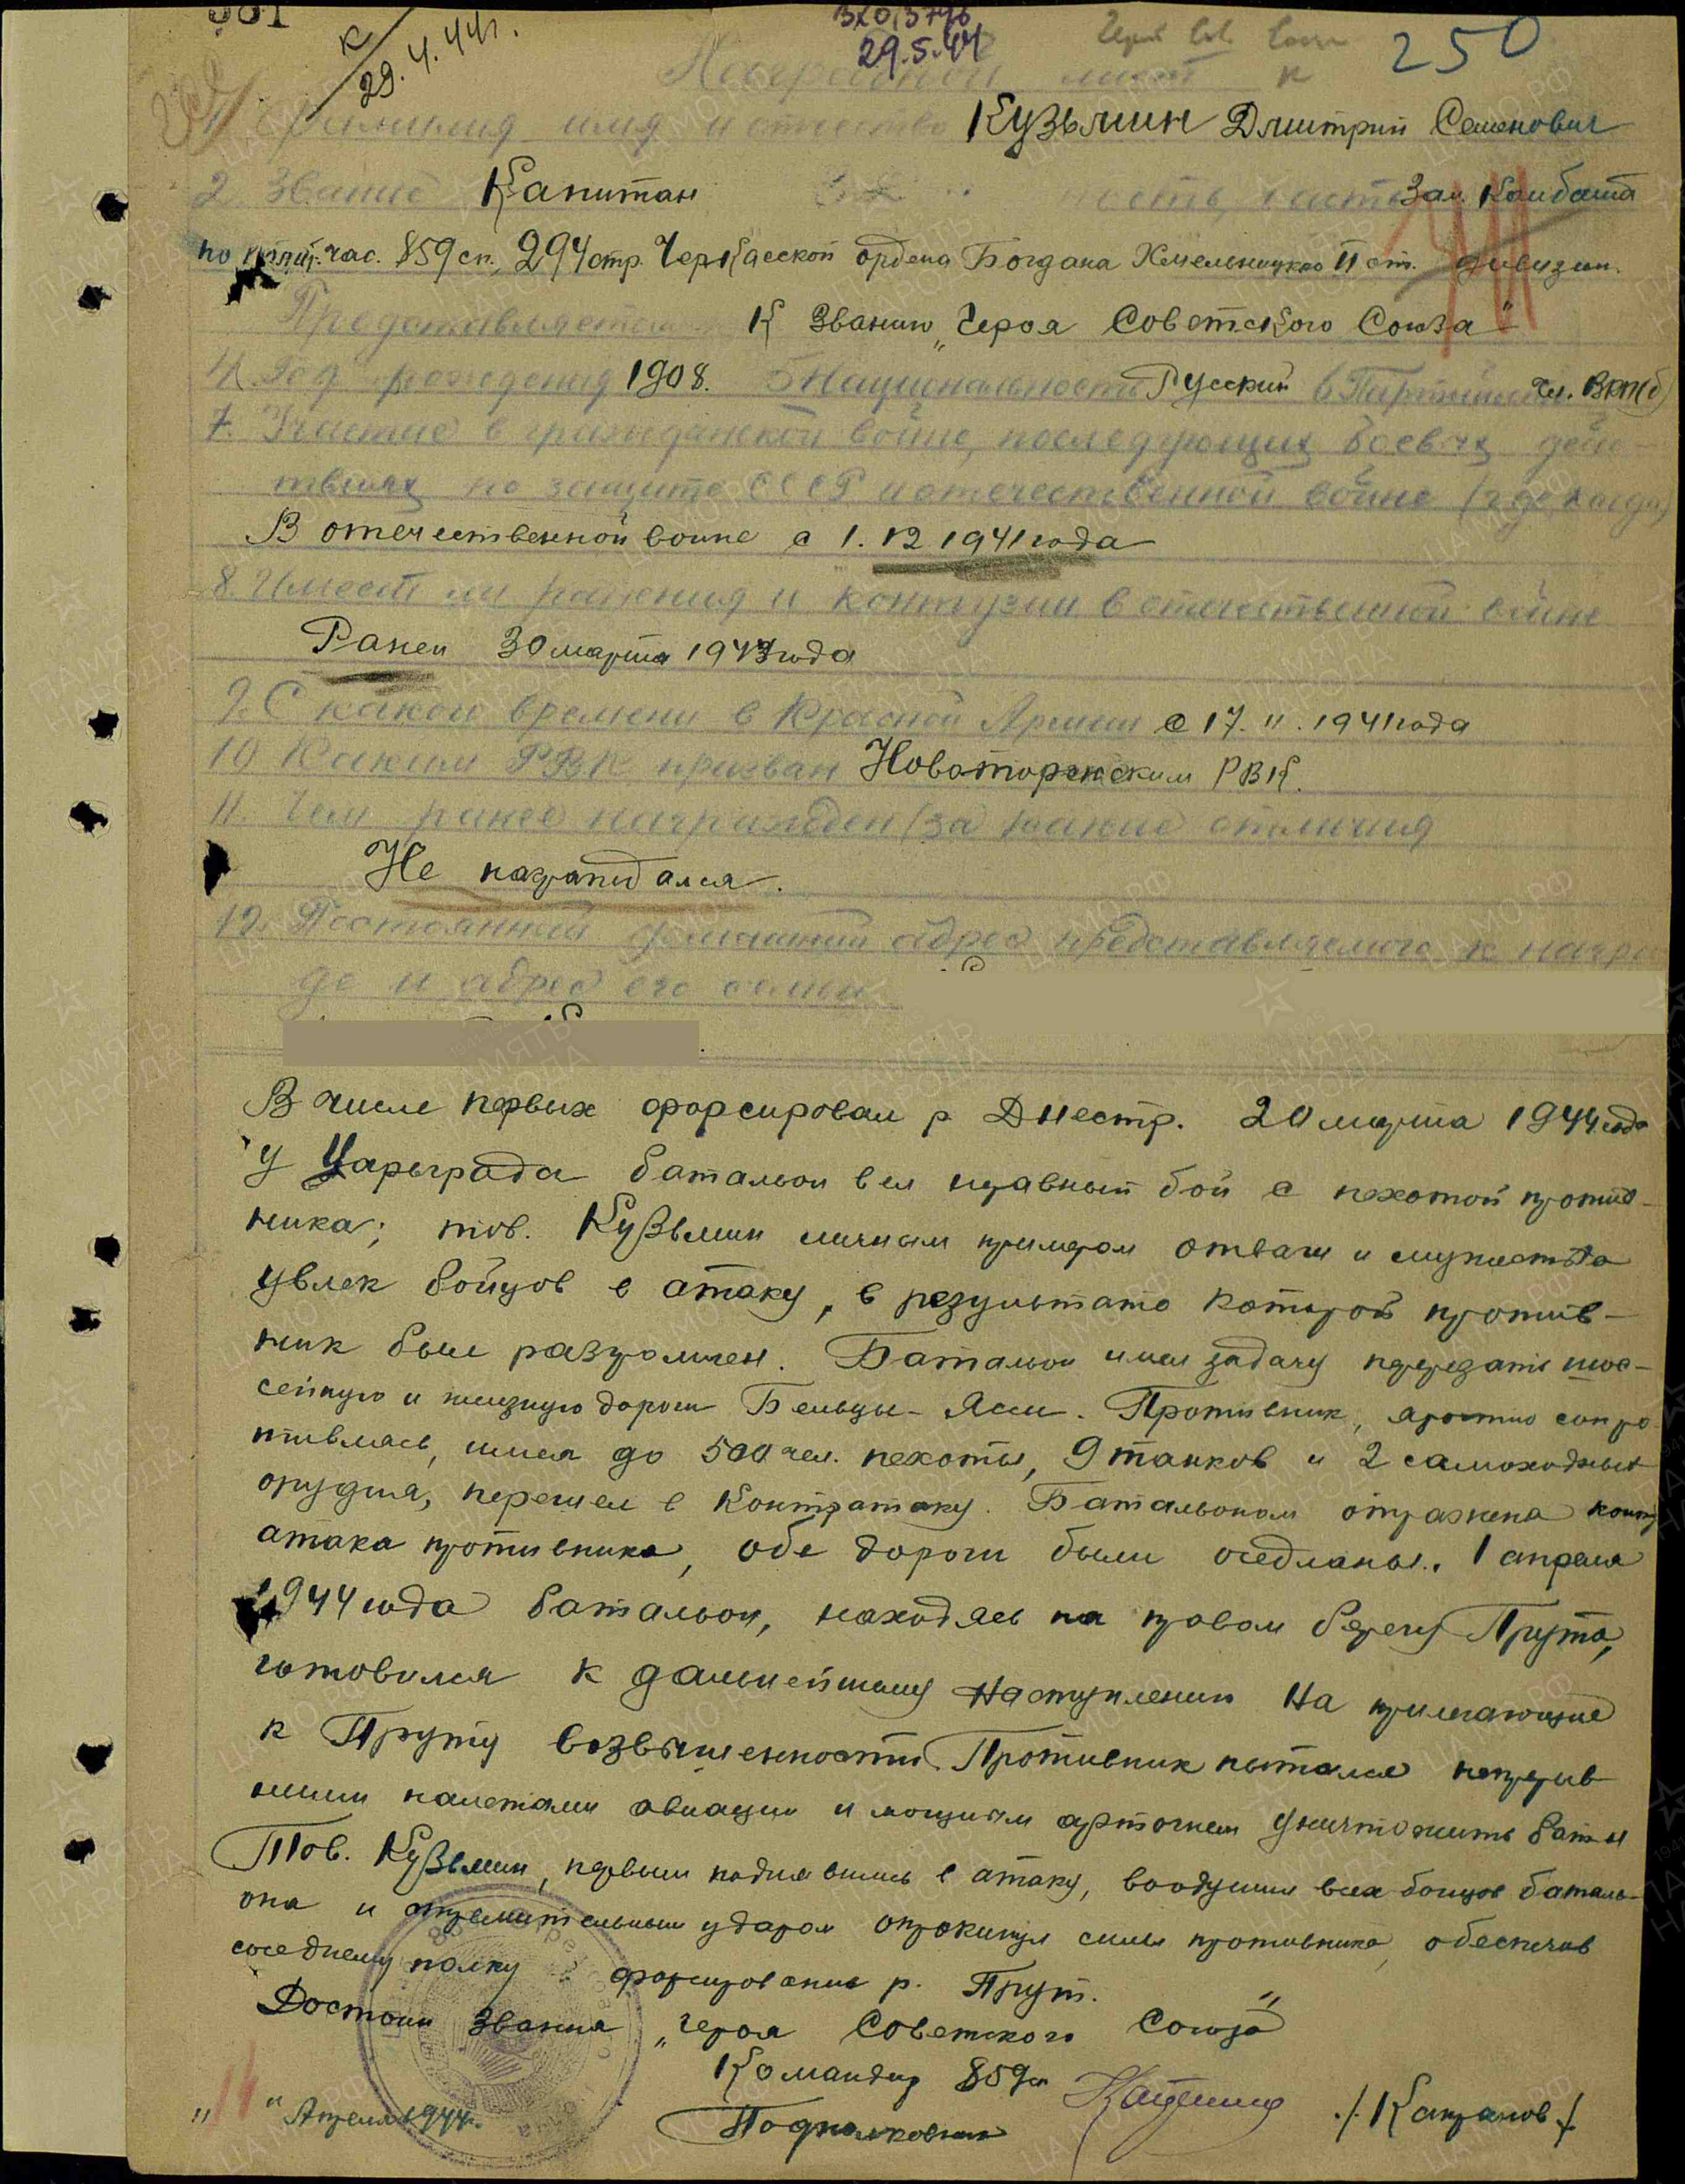 29.4.44г.
29.5.44
250
Наградной лист
1. Фамилия имя и отчество Кузьмин Дмитрий Семенович
2. Звание Капитан часть Зам. Комбата
по полит. час. 859 сп, 294 стр. Черкасской ордена Богдана Хмельницкого II ст. дивизии.
Представляется к званию „Героя Советского Союза"
4. Год рождения 1908. 5 Национальность Русский 6 Партийность Чл. ВКП(б)
7. Участие в гражданской войне, последующих боевых дей-
ствиях по защите СССР и отечественной войне (где когда)
В отечественной войне с 1.12 1941 года
8. Имеет ли ранения и контузии в отечественной войне
Ранен 30 марта 1943 года
9. С какого времени в Красной Армии с 17.11.1941 года
10 Каким РВК призван Новоторжским РВК.
11. Чем ранее награжден (за какие отличия
Не награждался.
12. Постоянный домашний адрес представляемого к награ
де и адрес его семьи
В числе первых форсировал р Днестр. 20 марта 1944 года
у Царьграда батальон вел неравный бой с пехотой против-
ника; тов. Кузьмин личным примером отваги и мужества
увлек бойцов в атаку, в результате которой против-
ник был разгромлен. Батальон имел задачу перерезать шос-
сейную и железную дороги Бельцы - Яссы. Противник, яростно сопро
тивляясь, имея до 500 чел. пехоты, 9 танков и 2 самоходных
орудия, перешел в контратаку. Батальоном отражена контр
атака противника, обе дороги были оседланы. 1 апреля
1944 года батальон, находясь на правом берегу Прута,
готовился к дальнейшему наступлению на прилегающие
к Пруту возвышенности. Противник пытался непрерыв
ными налетами авиации и мощным артогнем уничтожить бат-н
Тов. Кузьмин, первым поднявшись в атаку, воодушевил всех бойцов баталь-
она и стремительным ударом опрокинул силы противника, обеспечив
соседнему полку форсирование р. Прут.
Достоин звания „Героя Советского Союза"
Командир 859 сп
Подполковник /Капралов/
„14" Апреля 1944г.